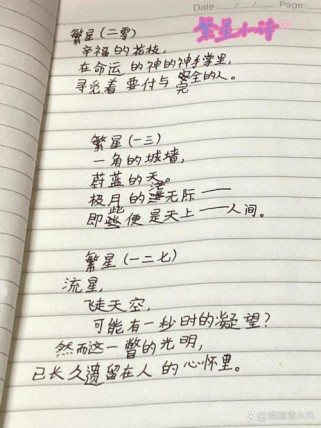 Date / /
繁星小诗
繁星(二零)
幸福的花枝,
在命运的神的神手掌里,
寻觅着要付与完全的人。
繁星(一三)
一角的城墙,
蔚蓝的天。
极目的苍茫无际——
即此便是天上——人间。
繁星(一二七)
流星,
飞走天空,
可能有一秒时的凝望?
然而这一瞥的光明,
已长久遗留在人的心怀里。